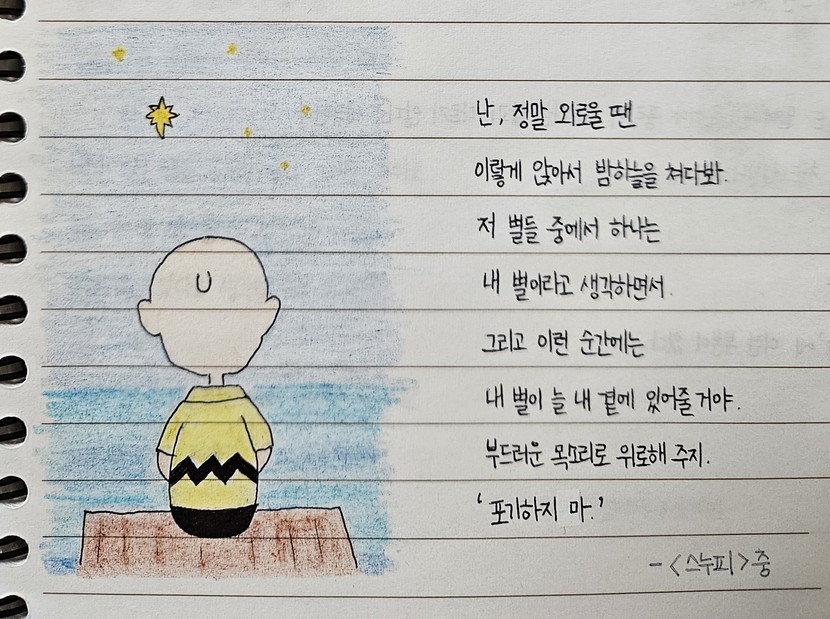 난, 정말 외로울 땐
이렇게 앉아서 밤하늘을 쳐다봐.
저 별들 중에서 하나는
내 별이라고 생각하면서.
그리고 이런 순간에는
내 별이 늘 내 곁에 있어줄거야.
부드러운 목소리로 위로해 주지.
'포기하지 마.'
-<스누피>중